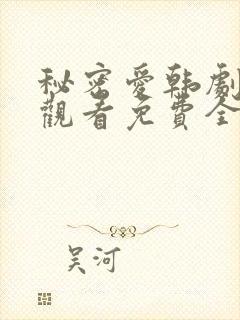 秘密愛韩劇
觀看免費全
吴河